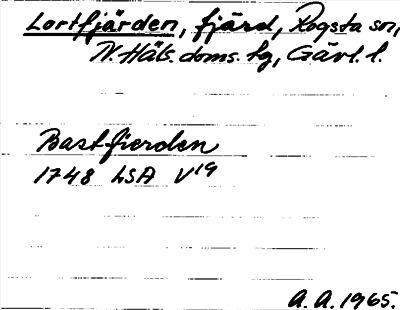 Lortfjärden, fjärd, Rogsta sn,
N. Häls. doms. tg, Gävl. l.
Bastfierden
1748 LSA V19
A. A. 1965.